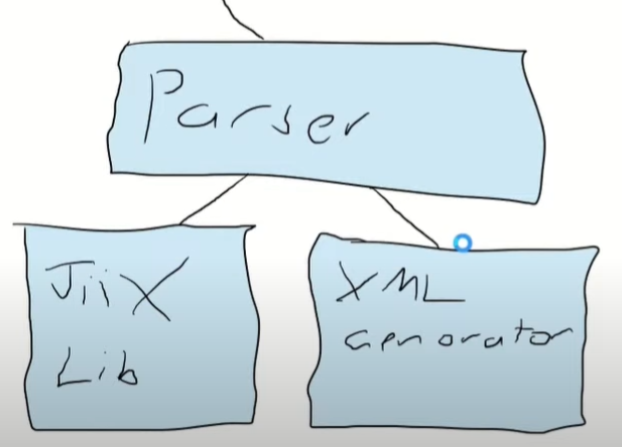 Parser
JiiX
Lib
XML
Generator